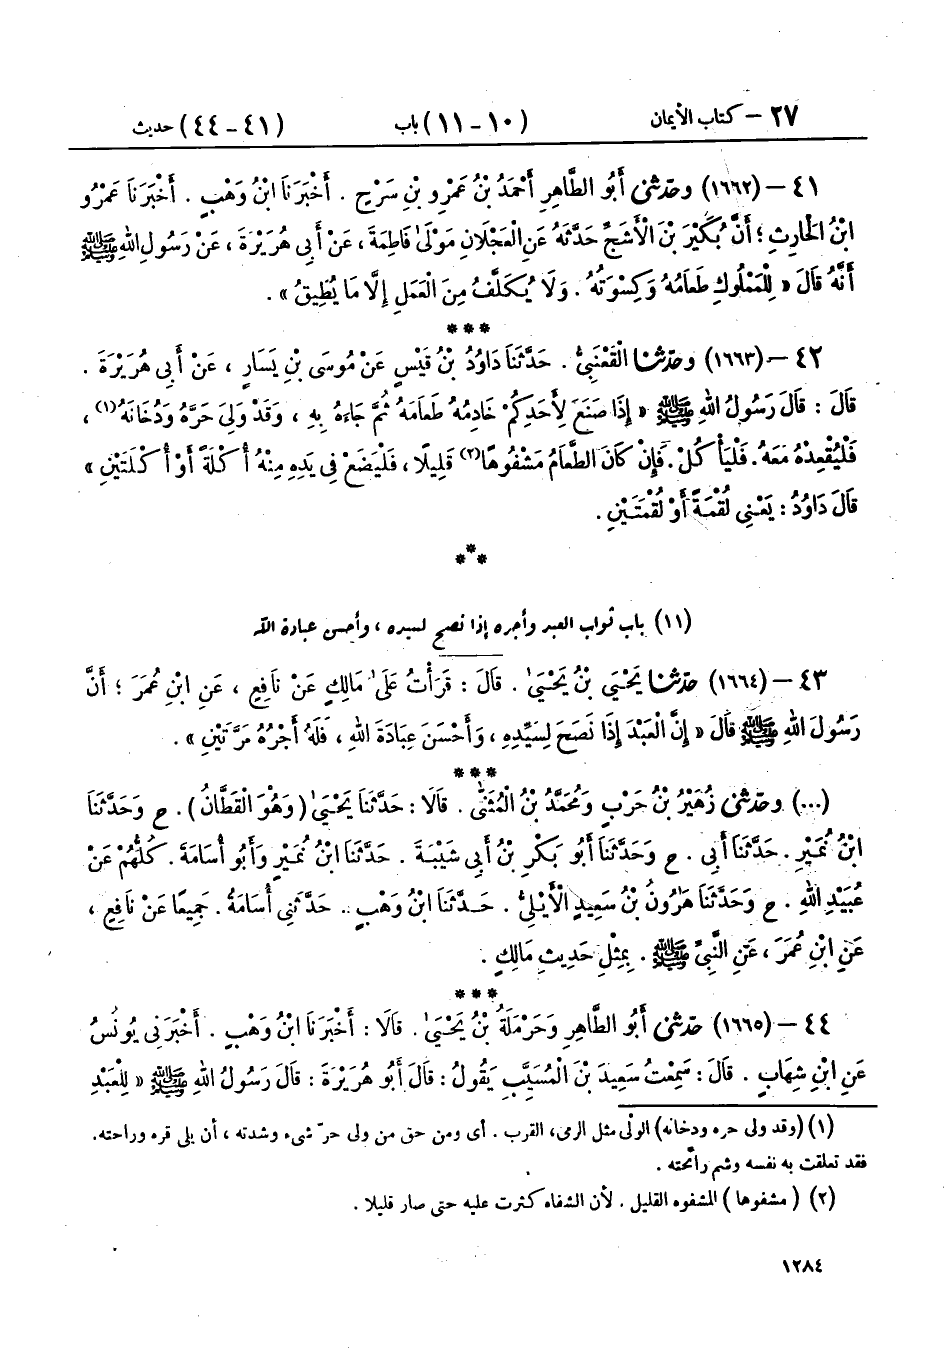 ٢٧ – كتاب الأيمان (١٠-١١) باب (٤١-٤٤) حديث
٤١ – (١٦٦٢) وحَدَّثَنِي أَبُو الطَّاهِرِ أَحْمَدُ بْنُ عَمْرِو بْنِ سَرْحٍ . أَخْبَرَنَا ابْنُ وَهْبٍ . أَخْبَرَنَا عَمْرُو
ابْنُ الْحَارِثِ ؛ أَنَّ بُكَيْرَ بْنَ الْأَشَجِّ حَدَّثَهُ عَنِ الْعَجْلَانِ مَوْلَىٰ فَاطِمَةَ ، عَنْ أَبِي هُرَيْرَةَ ، عَنْ رَسُولِ اللهِ ﷺ
أَنَّهُ قَالَ « لِلْمَمْلُوكِ طَعَامُهُ وَكِسْوَتُهُ . وَلَا يُكَلَّفُ مِنَ الْعَمَلِ إِلَّا مَا يُطِيقُ » .
***
٤٢ – (١٦٦٣) وحَدَّثَنَا الْقَعْنَبِيُّ . حَدَّثَنَا دَاوُدُ بْنُ قَيْسٍ عَنْ مُوسَى بْنِ يَسَارٍ ، عَنْ أَبِي هُرَيْرَةَ .
قَالَ : قَالَ رَسُولُ اللهِ ﷺ « إِذَا صَنَعَ لِأَحَدِكُمْ خَادِمُهُ طَعَامَهُ ثُمَّ جَاءَهُ بِهِ ، وَقَدْ وَلِيَ حَرَّهُ وَدُخَانَهُ(١) ،
فَلْيُقْعِدْهُ مَعَهُ. فَلْيَأْكُلْ. فَإِنْ كَانَ الطَّعَامُ مَشْفُوهًا(٢) قَلِيلًا ، فَلْيَضَعْ فِي يَدِهِ مِنْهُ أُكْلَةً أَوْ أُكْلَتَيْنِ »
قَالَ دَاوُدُ : يَعْنِي لُقْمَةً أَوْ لُقْمَتَيْنِ .
***
(١١) باب ثواب العبد وأجره إذا نصح لسيده ، وأحسن عبادة الله
٤٣ – (١٦٦٤) حَدَّثَنَا يَحْيَى بْنُ يَحْيَىٰ . قَالَ : قَرَأْتُ عَلَىٰ مَالِكٍ عَنْ نَافِعٍ ، عَنِ ابْنِ عُمَرَ ؛ أَنَّ
رَسُولَ اللهِ ﷺ قَالَ « إِنَّ الْعَبْدَ إِذَا نَصَحَ لِسَيِّدِهِ ، وَأَحْسَنَ عِبَادَةَ اللهِ ، فَلَهُ أَجْرُهُ مَرَّتَيْنِ » .
***
(...) وحَدَّثَنِي زُهَيْرُ بْنُ حَرْبٍ وَمُحَمَّدُ بْنُ الْمُثَنَّىٰ . قَالَا : حَدَّثَنَا يَحْيَىٰ (وَهُوَ الْقَطَّانُ) . ح وَحَدَّثَنَا
ابْنُ نُمَيْرٍ . حَدَّثَنَا أَبِي . ح وَحَدَّثَنَا أَبُو بَكْرِ بْنُ أَبِي شَيْبَةَ . حَدَّثَنَا ابْنُ نُمَيْرٍ وَأَبُو أُسَامَةَ . كُلُّهُمْ عَنْ
عُبَيْدِ اللهِ . ح وَحَدَّثَنَا هَارُونُ بْنُ سَعِيدٍ الْأَيْلِيُّ . حَدَّثَنَا ابْنُ وَهْبٍ . حَدَّثَنِي أُسَامَةُ . جَمِيعًا عَنْ نَافِعٍ ،
عَنِ ابْنِ عُمَرَ ، عَنِ النَّبِيِّ ﷺ . بِمِثْلِ حَدِيثِ مَالِكٍ .
***
٤٤ – (١٦٦٥) حَدَّثَنِي أَبُو الطَّاهِرِ وَحَرْمَلَةُ بْنُ يَحْيَىٰ . قَالَا : أَخْبَرَنَا ابْنُ وَهْبٍ . أَخْبَرَنِي يُونُسُ
عَنِ ابْنِ شِهَابٍ . قَالَ : سَمِعْتُ سَعِيدَ بْنَ الْمُسَيَّبِ يَقُولُ : قَالَ أَبُو هُرَيْرَةَ : قَالَ رَسُولُ اللهِ ﷺ « لِلْعَبْدِ
(١) (وقد ولى حره ودخانه) الولْى مثل الرمى، القرب . أى ومن حق من ولى حرّ شىء وشدته ، أن يلى قره وراحته.
فقد تعلقت به نفسه وشم رائحته .
(٢) (مشفوها) المشفوه القليل . لأن الشفاه كثرت عليه حتى صار قليلا .
١٢٨٤